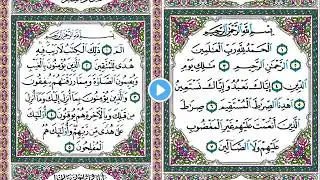 بِسْمِ اللَّهِ الرَّحْمَٰنِ الرَّحِيمِ
الْحَمْدُ لِلَّهِ رَبِّ الْعَٰلَمِينَ
الرَّحْمَٰنِ الرَّحِيمِ مَٰلِكِ يَوْمِ
الدِّينِ إِيَّاكَ نَعْبُدُ وَإِيَّاكَ نَسْتَعِينُ
اهْدِنَا الصِّرَٰطَ الْمُسْتَقِيمَ صِرَٰطَ
الَّذِينَ أَنْعَمْتَ عَلَيْهِمْ غَيْرِ الْمَغْضُوبِ
عَلَيْهِمْ وَلَا الضَّالِّينَ
بِسْمِ اللَّهِ الرَّحْمَٰنِ الرَّحِيمِ
الٓمٓ ذَٰلِكَ الْكِتَٰبُ لَا رَيْبَ فِيهِ
هُدًى لِلْمُتَّقِينَ الَّذِينَ يُؤْمِنُونَ بِالْغَيْبِ
وَيُقِيمُونَ الصَّلَوٰةَ وَمِمَّا رَزَقْنَٰهُمْ يُنْفِقُونَ
وَالَّذِينَ يُؤْمِنُونَ بِمَا أُنْزِلَ إِلَيْكَ وَمَا أُنْزِلَ
مِنْ قَبْلِكَ وَبِالْآخِرَةِ هُمْ يُوقِنُونَ أُولَٰئِكَ
عَلَىٰ هُدًى مِنْ رَبِّهِمْ وَأُولَٰئِكَ هُمُ
الْمُفْلِحُونَ